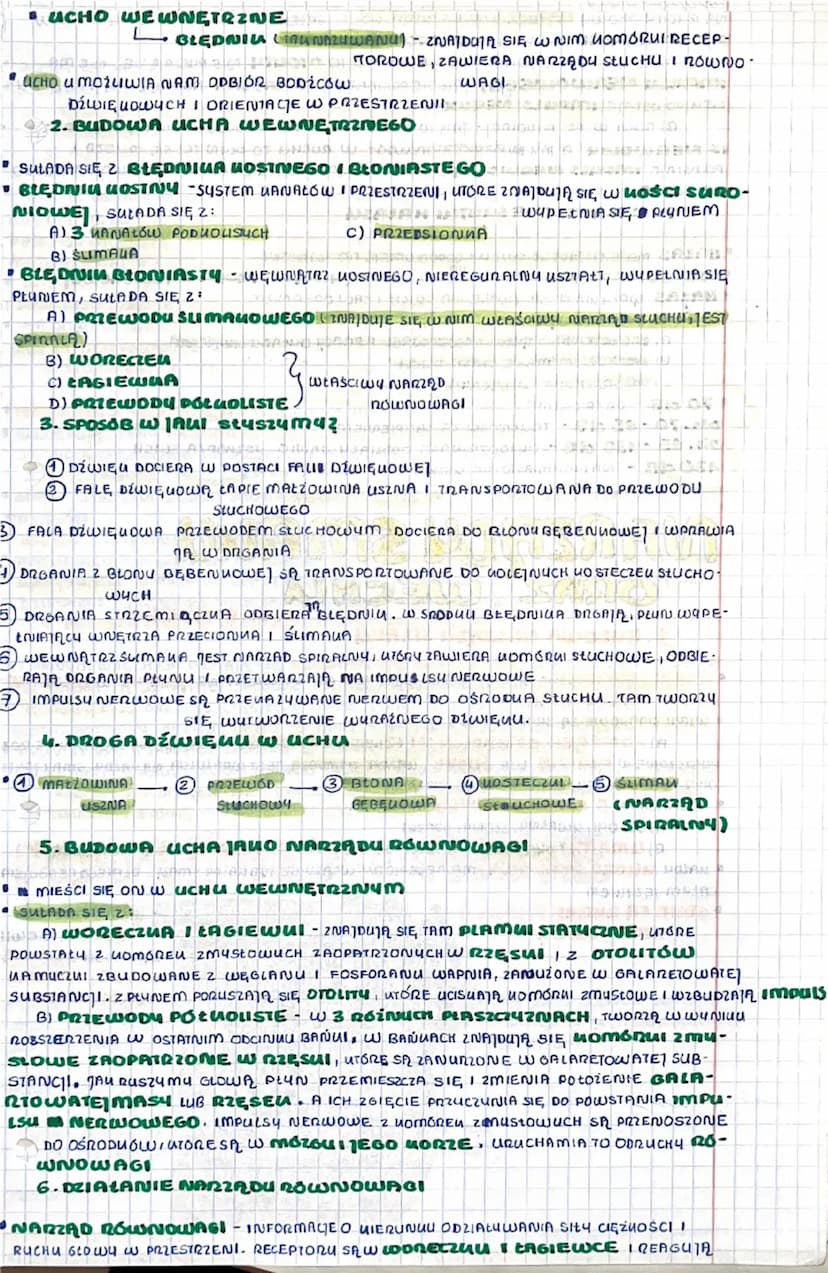 • UCHO WEWNĘTRZNE
BŁĘDNIK (TAK NAZYWANY) - ZNAJDUJĄ SIĘ W NIM KOMÓRKI RECEP-
TOROWE, ZAWIERA NARZĄDY SŁUCHU I RÓWNO-
WAGI
• UCHO UMOŻLIWIA NAM ODBIÓR BODŹCÓW
DŹWIĘKOWYCH I ORIENTACJE W PRZESTRZENII
2. BUDOWA UCHA WEWNĘTRZNEGO
• SKŁADA SIĘ Z BŁĘDNIKA KOSTNEGO I BŁONIASTEGO
• BŁĘDNIK KOSTNY - SYSTEM KANAŁÓW I PRZESTRZENI, KTÓRE ZNAJDUJĄ SIĘ W KOŚCI SKRO-
NIOWEJ, SKŁADA SIĘ Z: WYPEŁNIA SIĘ PŁYNEM
A) 3 KANAŁÓW PÓŁKOLISYCH C) PRZEDSIONKA
B) ŚLIMAKA
• BŁĘDNIK BŁONIASTY - WEWNĄTRZ KOSTNEGO, NIEREGURALNY KSZTAŁT, WYPEŁNIA SIĘ
PŁYNEM, SKŁADA SIĘ Z:
A) PRZEWODU ŚLIMAKOWEGO (ZNAJDUJE SIĘ W NIM WŁAŚCIWY NARZĄD SŁUCHU, JEST
SPIRALĄ)
B) WORECZEK
C) ŁAGIEWKA
D) PRZEWODY PÓŁKOLISTE } WŁAŚCIWY NARZĄD
RÓWNOWAGI
3. SPOSÓB W JAKI SŁYSZYMY?
① DŹWIĘK DOCIERA W POSTACI FALII DŹWIĘKOWEJ
② FALĘ DŹWIĘKOWĄ ŁAPIE MAŁŻOWINA USZNA I TRANSPORTOWANA DO PRZEWODU
SŁUCHOWEGO
3) FALA DŹWIĘKOWA PRZEWODEM SŁUCHOWYM DOCIERA DO BŁONY BĘBENKOWEJ I WPRAWIA
JĄ W DRGANIA
4) DRGANIA Z BŁONY BĘBENKOWEJ SĄ TRANSPORTOWANE DO KOLEJNYCH KOSTECZEK SŁUCHO-
WYCH
5) DRGANIA STRZEMIĄCZKA ODBIERA BŁĘDNIK. W ŚRODKU BŁĘDNIKA DRGAJĄ, PŁYN WYPE-
ŁNIAJĄCY WNĘTRZA PRZECIONKA I ŚLIMAKA
6) WEWNĄTRZ ŚLIMAKA JEST NARZĄD SPIRALNY, KTÓRY ZAWIERA KOMÓRKI SŁUCHOWE, ODBIE-
RAJĄ DRGANIA PŁYNU I PRZETWARZAJĄ NA IMPULSY NERWOWE
7) IMPULSY NERWOWE SĄ PRZEKAZYWANE NERWEM DO OŚRODKA SŁUCHU. TAM TWORZY
SIĘ WYTWORZENIE WYRAŹNEGO DŹWIĘKU.
4. DROGA DŹWIĘKU W UCHU
• ① MAŁŻOWINA — ② PRZEWÓD — ③ BŁONA — ④ KOSTECZKI — ⑤ ŚLIMAK
USZNA SŁUCHOWY BĘBĘKOWA SŁUCHOWE (NARZĄD
SPIRALNY)
5. BUDOWA UCHA JAKO NARZĄDU RÓWNOWAGI
• MIEŚCI SIĘ ON W UCHU WEWNĘTRZNYM
• SKŁADA SIĘ Z:
A) WORECZKA I ŁAGIEWKI - ZNAJDUJĄ SIĘ TAM PLAMKI STATYCZNE, KTÓRE
POWSTAŁY Z KOMÓREK ZMYSŁOWYCH ZAOPATRZONYCH W RZĘSKI I Z OTOLITÓW
KAMYCZKI ZBUDOWANE Z WĘGLANU I FOSFORANU WAPNIA, ZANUŻONE W GALARETOWATEJ
SUBSTANCJI. Z PŁYNEM PORUSZAJĄ SIĘ OTOLITY, KTÓRE UCISKAJĄ KOMÓRKI ZMYSŁOWE I WZBUDZAJĄ IMPULS
B) PRZEWODY PÓŁKOLISTE - W 3 RÓŻNYCH PŁASZCZYZNACH, TWORZĄ W WYNIKU
ROZSZERZENIA W OSTATNIM ODCINKU BAŃKI. W BAŃKACH ZNAJDUJĄ SIĘ KOMÓRKI ZMY-
SŁOWE ZAOPATRZONE W RZĘSKI, KTÓRE SĄ ZANURZONE W GALARETOWATEJ SUB-
STANCJI. JAK RUSZYMY GŁOWĄ PŁYN PRZEMIESZCZA SIĘ I ZMIENIA POŁOŻENIE GALA-
RTOWATEJ MASY LUB RZĘSEK. A ICH ZGIĘCIE PRZYCZYNIA SIĘ DO POWSTANIA IMPU-
LSU NERWOWEGO. IMPULSY NERWOWE Z KOMÓREK ZMYSŁOWYCH SĄ PRZENOSZONE
DO OŚRODKÓW, KTÓRE SĄ W MÓZGU I JEGO KORZE. URUCHAMIA TO ODRUCHY RÓ-
WNOWAGI
6. DZIAŁANIE NARZĄDU RÓWNOWAGI
• NARZĄD RÓWNOWAGI - INFORMACJE O KIERUNKU ODZIAŁYWANIA SIŁY CIĘŻKOŚCI I
RUCHU GŁOWY W PRZESTRZENI. RECEPTORY SĄ W WORECZKU I ŁAGIEWCE I REAGUJĄ